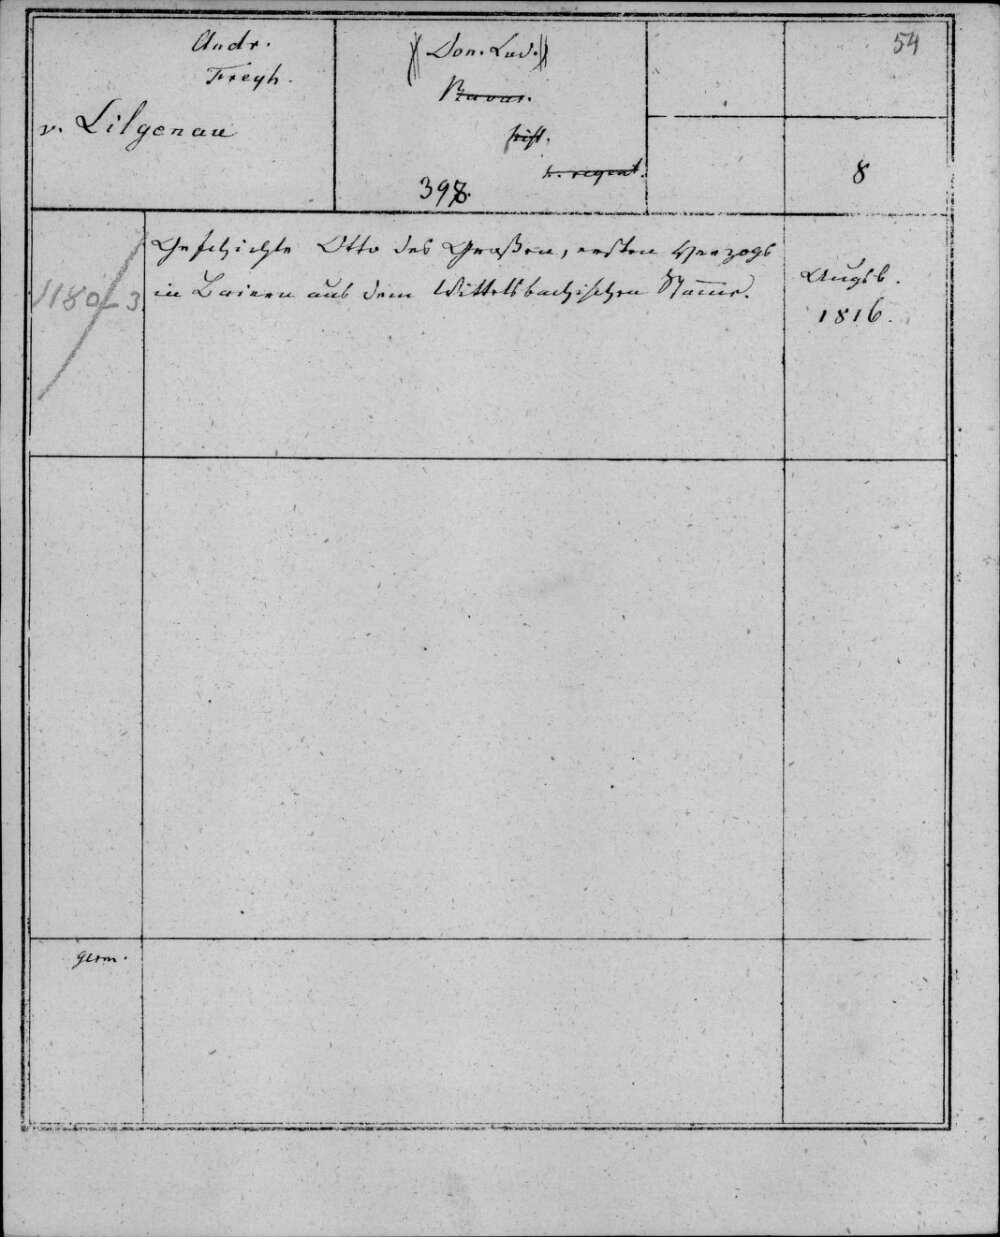 Andr.
Freyh.
v. Lilgenau
(Don. Lud.)
Bavar.
hist.
s. regent.
398.
54
8
1180–3.
Geschichte Otto des Großen, ersten Herzogs
in Baiern aus dem Wittelsbachischen Stam̅e.
Augsb.
1816.
germ.